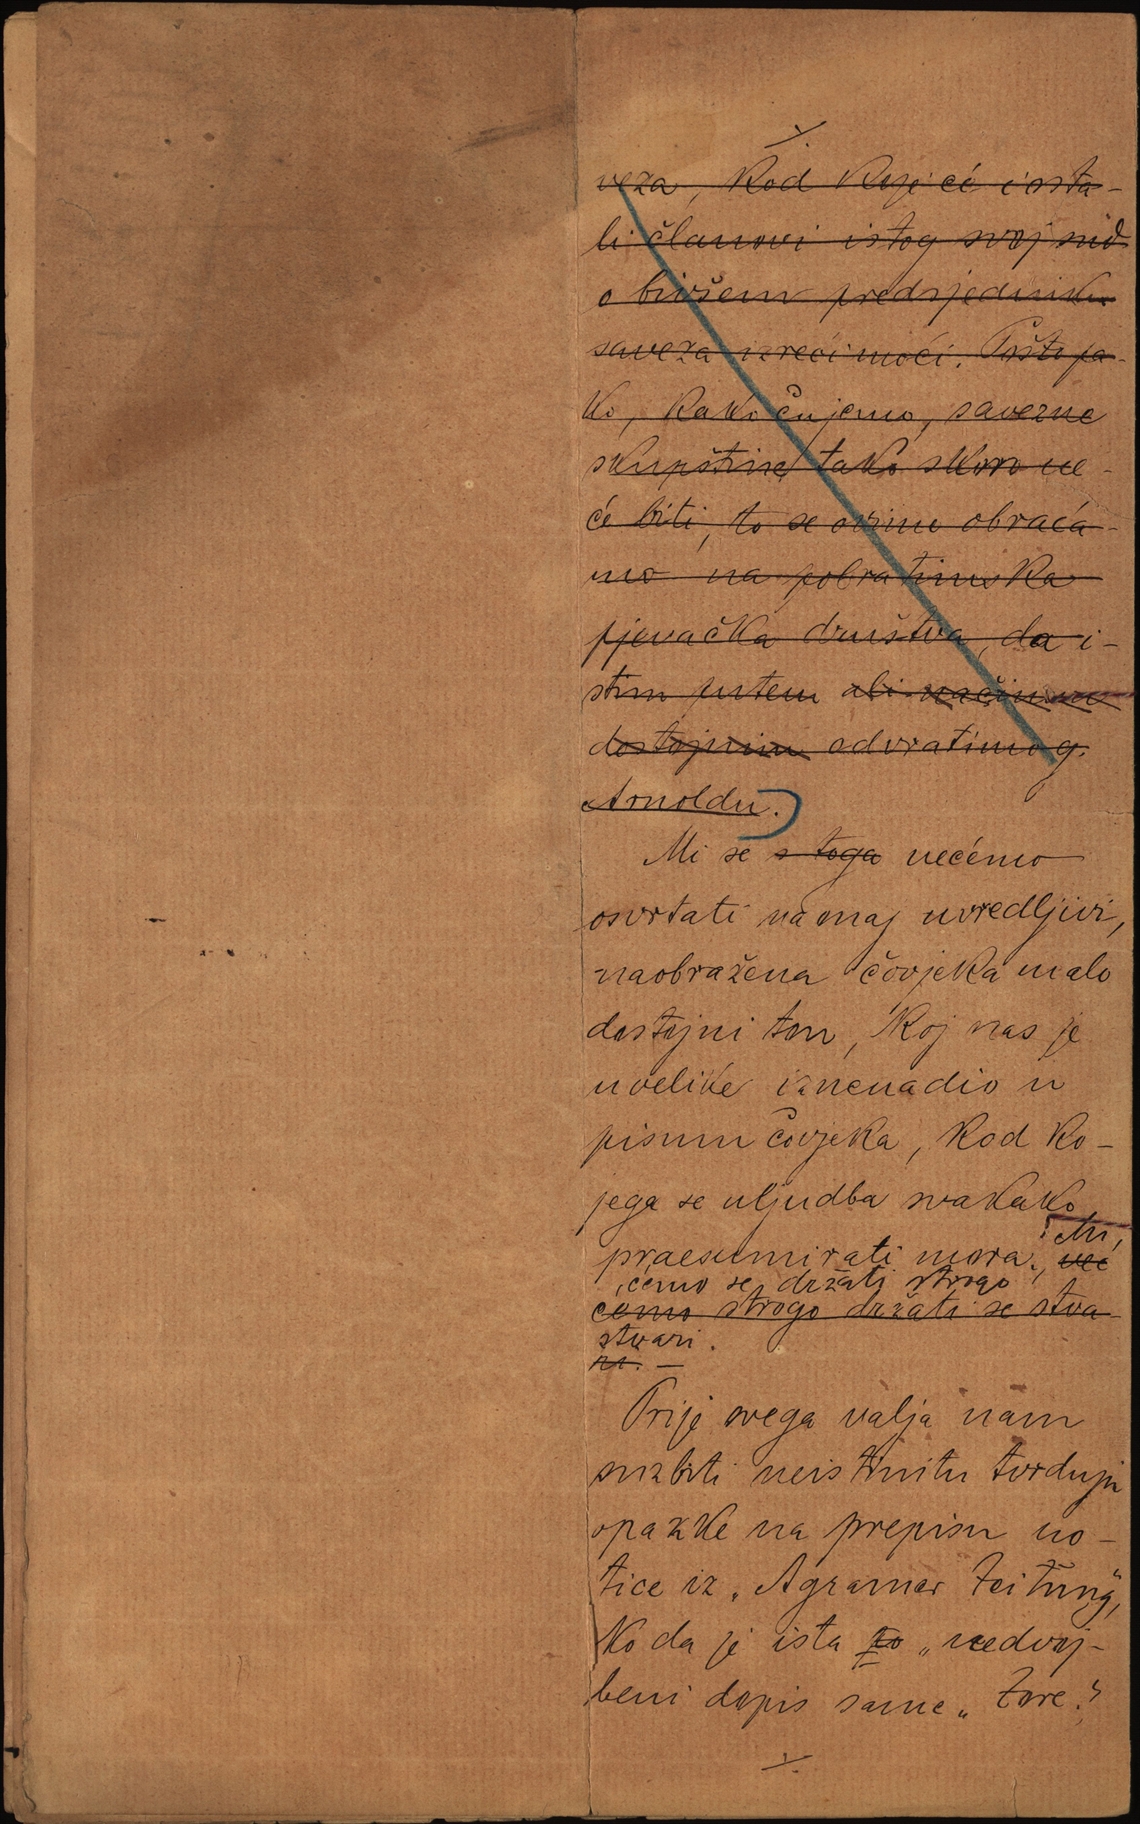 veza, kod koje će i osta-
li članovi istog svoj sud
o bivšem predsjedniku
saveza izreći moći. Pošto pa-
ko, kako čujemo, savezne
skupštine tako skoro ne-
će biti, to se ovime obraća-
mo na pobratimska
pjevačka društva, da i-
stim putem ali načinom
dostojnim odvratimo g.
Arnoldu.
Mi se s toga nećemo
osvrtati na onaj uvredljivi,
naobražena čovjeka malo
dostojni ton, koj nas je
uvelike iznenadio u
pismu čovjeka, kod ko-
jega se uljudba svakako
praesumirati mora., već
Mi,
ćemo se držati strogo
ćemo strogo držati se stva-
stvari.
ri. —
Prije svega valja nam
suzbiti neistinitu tvrdnju
opazke na prepisu no-
tice iz „Agramer Zeitung",
ko da je ista po „nedvoj-
beni dopis same „Zore."